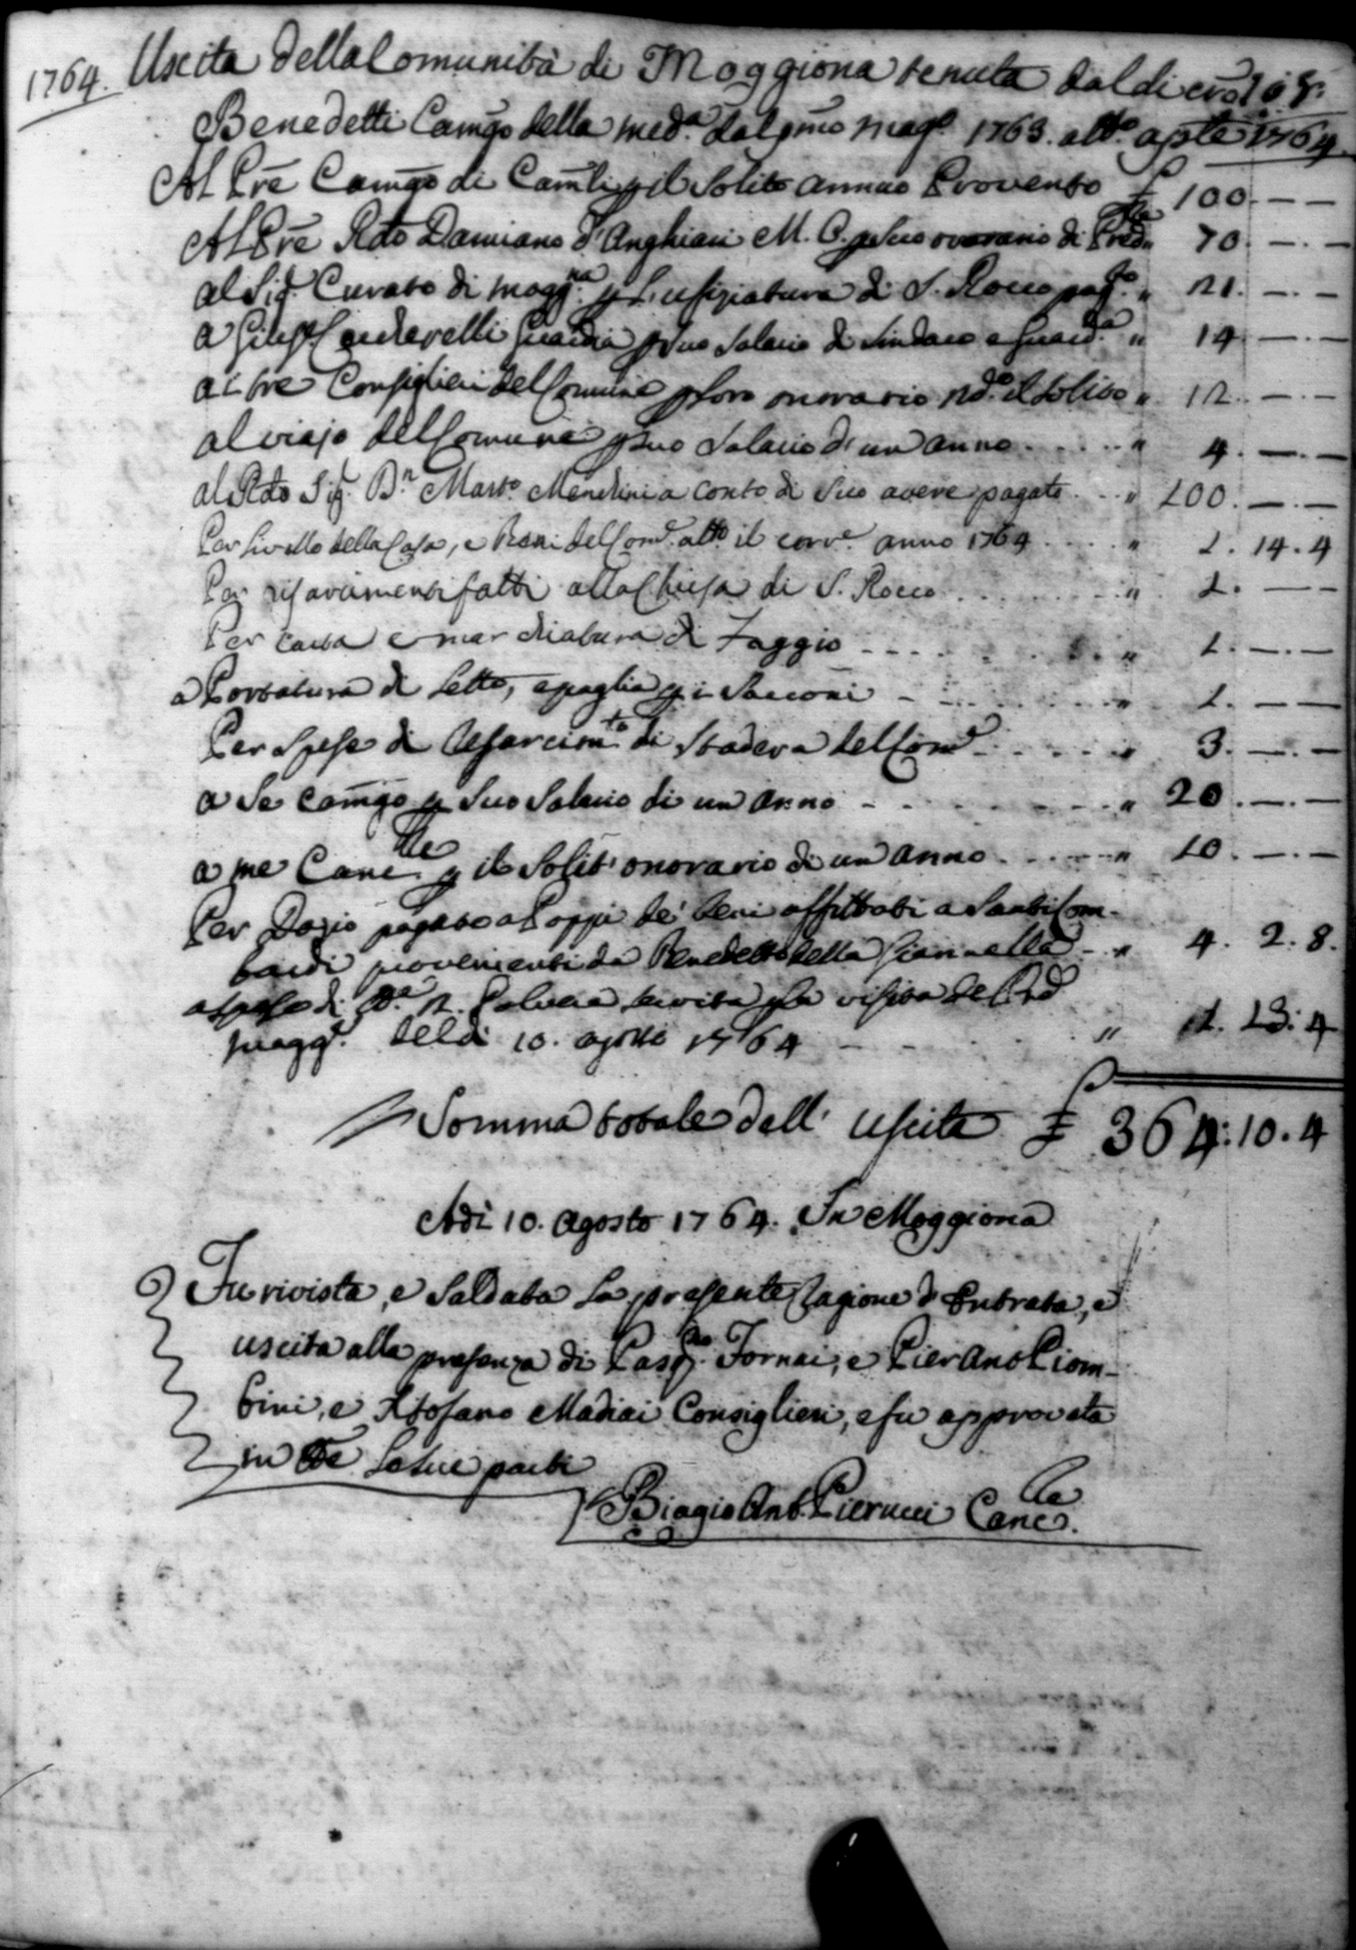 1764. Uscita della Comunità di Moggiona tenuta dal di
Benedetti Camgo della med.a dal pmo magg. 1763. a tto aple 1764
Al Pre Camgo di Camli p il Solito annuo Provento £ 100. —. —
Al Pre Rdo Damiano d'Anghiari M. O. p suo onorario di Pred. " 70. —. —
al Sig. Curato di Mogg.na p L'ufiziatura di S. Rocco pag.to " 21. —. —
a Guardia p suo Salario di Sindaco e Guard.a " 14 —. —
ai tre Consiglieri del Comune p loro onorario il Solito " 12. —. —
al viajo del Comune p suo Salario di un anno " 4. —. —
al Rdo Sig. Mart.o Mendini a conto di suo avere pagate " 100. —. —
Per Livello della Casa, e Beni del Com.e a tto il corr.e anno 1764 " 1. 14. 4
Per risarcimenti fatti alla Chiesa di S. Rocco " 2. — —
Per carta e di Faggio " 1. —. —
a Portatura di Letto, e paglia p i Sacconi " 1. — —
Per Spese di Resarcim.to di Stadera del Com.e " 3. —. —
a Se Camgo p Suo Salario di un anno " 20. —. —
a me Canc.re p il Solit' onorario di un anno " 10. —. —
Per Dazio pagato a Poppi de' beni affittati a Santi Lom-
bardi provenienti da Benedetto della Giannella " 4. 2. 8.
a spese di servita p la visita del
magg.e del di 10. agosto 1764 " 1. 13. 4
Somma totale dell' uscita £ 364: 10. 4
Adi 10. Agosto 1764. In Moggiona
Fu rivista, e Saldata La presente Ragione d' Entrata, e
uscita alla presenza di Pasq.e Fornai, e Pier Ant. Piom-
bini, e Xtofano Madiai Consiglieri, e fu approvata
in tte Le sue parti
Biagio Ant. Pierucci Canc.re